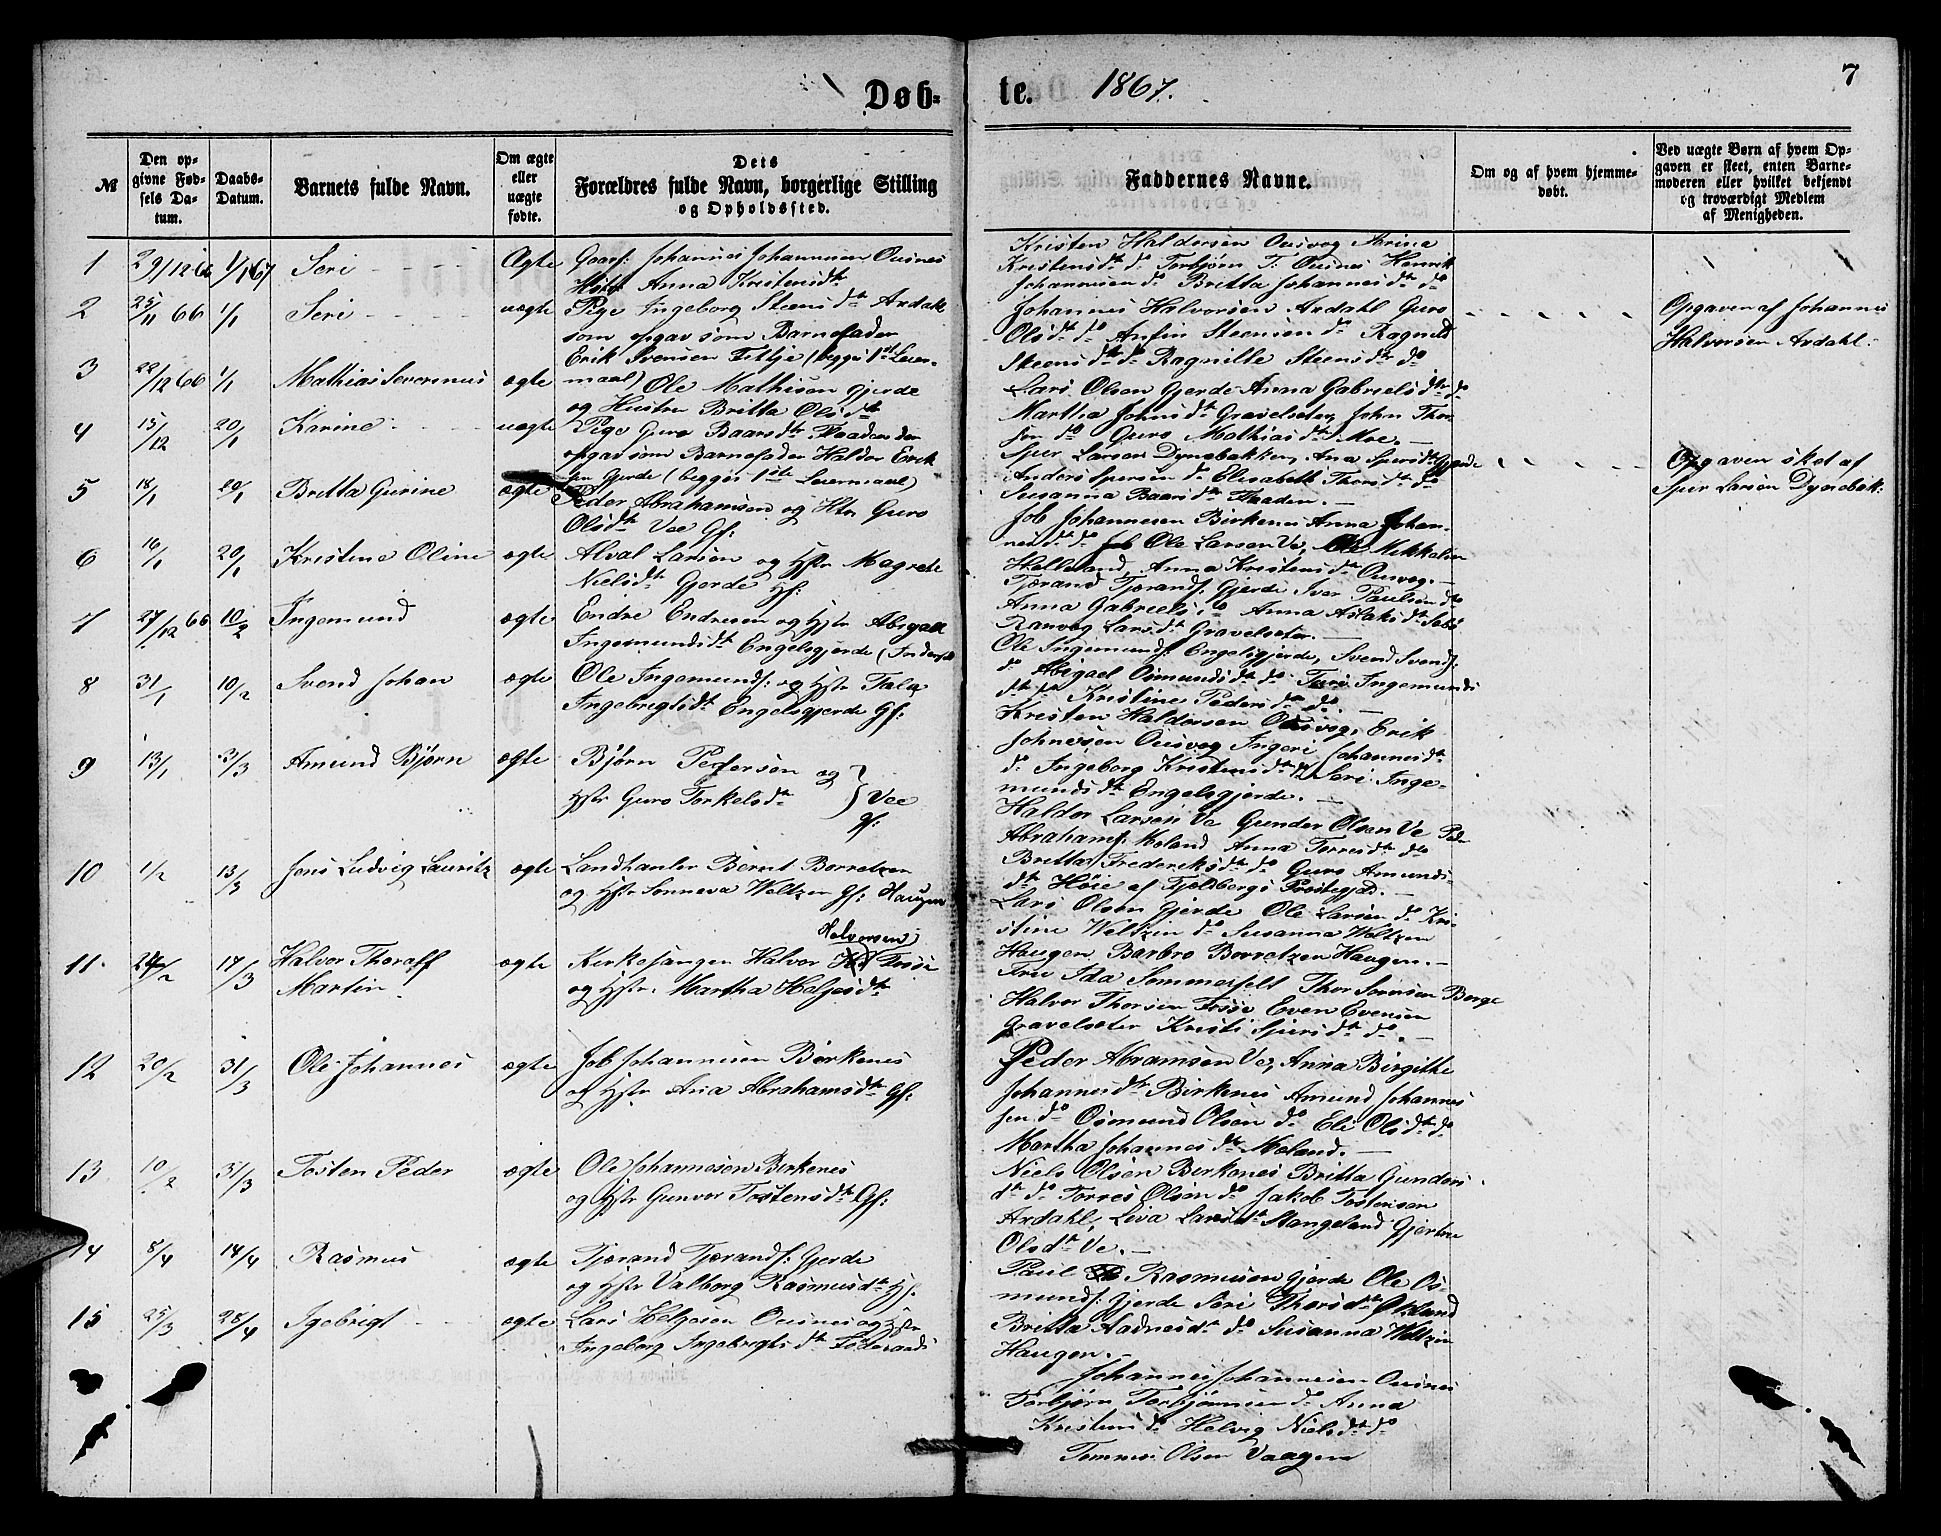 Døb-
te.
1867.
7
№
Den opgivne Fødsels Datum.
Daabs-Datum.
Barnets fulde Navn.
Om ægte eller uægte fødte.
Dets
Forældres fulde Navn, borgerlige Stilling
og Opholdssted.
Faddernes Navne.
Om og af hvem hjemmedøbt.
Ved uægte Børn af hvem Opgaven er skeet, enten Barnemoderen eller hvilket bekjendt og troværdigt Medlem af Menigheden.
1 29/12 66 1/1 67 Seri Ægte Gaarf: Johannes Johannesen Ousnes
Hustr Anna Kristensdtr
Kristen Haldorsen Ousvog
Kristensdtr do Torbjørn T: Ousnes Henrik
Johannesen do Britta Johannesdtr do
2 25/11 66 1/1 Seri uægte Pige Ingeborg Steensdtr Ardahl
som opgav som Barnefader
Erik Svensen Tittje (begges 1ste Leiermaal)
Johannes Halvorsen Ardahl Guro
Olsdtr do Anfin Steensen do Ragnild
Steensdtr do Ragnille Steensdtr do
Opgaven af Johannes
Halvorsen Ardahl:
3 22/12 66 1/1 Mathias Severinus ægte Ole Mathisen Gjerde
og Hustru Britta Olsdtr
Lars Olsen Gjerde Anna Gabrielsdtr do
Martha Johnsdtr Gravelseter John Thorsen do Guro Mathiasdtr Moe. —
4 15/12 20/1 Karine uægte Pige Guro Baarsdtr Flaaden der
opgav som Barnefader Haldor Eriksen Gjerde (begges 1ste Leiermaal)
Sjur Larsen Dynebakken, Ana Sjursdtr Gjerde
Anders Sjursen do Elisabeth Thorsdtr do
Susanna Baarsdtr Flaaden. —
Opgaven sket af
Sjur Larsen Dynebak:
5 18/1 20/1 Britta Gurine ægte Peder Abrahamsen og Htr Guro
Olsdtr Vee Gf:
Job Johannesen Birkenes Anna Johannesdtr do Ole Larsen Ve, Ole Mikkelsen
Helleland, Anna Kristensdtr Ousvog. —
6 16/1 20/1 Kristine Oline ægte Alval Larsen og Hstr Magrete
Nielsdtr Gjerde Hf:
Tjerand Tjerandf. Gjerde Iver Paulsen do
Anna Gabriels do Anna Aslaksdtr Sebø
Ranvog Larsdtr Gravelseter. —
7 27/12 66 10/2 Ingemund ægte Endre Endresen og Hstr Abigael
Ingemundsdtr Engelsgjerde (Inderst)
Ole Ingemunds: Engelsgjerde, Svend Svends:
do Abigael Osmundsdtr do Turi Ingemundsdtr do Kristine Pedersdtr do. —
8 31/1 10/2 Svend Johan ægte Ole Ingemunds: og Hstr Tala
Ingebrigtsdtr Engelsgjerde Gf:
Kristen Haldorsen Ousvog, Erik
Johnesen Ousvog Ingeri Johannesdtr
do Ingeborg Kristensdtr Seri Ingemundsdtr Engelsgjerde. —
9 13/1 3/3 Amund Bjørn ægte Bjørn Pedersen og
Hstr Guro Torkelsdtr } Vee
Gf:
Haldor Larsen Ve Gunder Olsen Ve Peder
Abrahamf. Moland Anna Torresdtr do
Britta Frederiksdtr do Guro Amundsdtr Høie af Fjeldbergs Præstegjæld. —
10 1/2 13/3 Jens Ludvig Lauritz ægte Landhanler Bernt Borretzen
og Hstr Sonneva Weltzen Gf: Haugen
Lars Olsen Gjerde Ole Larsen do Kristine Weltzin do Susanna Weltzen
Haugen Barbro Borretzen Haugen. —
11. 24/2 17/3 Halvor Thoralf
Martin ægte Kirkesanger Halvor Halvorsen Frøsi
og Hstr. Martha Helgesdtr
Frue Ida Sommerfelt Thor Sorensen Berge
Halvor Thorsen Even Evensen
Gravelseter Kristi Sjursdtr do. —
12 20/2 31/3 Ole Johannes ægte Job Johannesen Birkenes
og Hstr Ana Abrahamsdtr Gf:
Peder Abramsen Ve, Anna Birgithe
Johannesdtr Birkenes Amund Johannessen do Osmund Olsen do Eli Olsdtr do
Martha Johannesdtr Moland. —
13 10/2 31/3 Tosten Peder ægte Ole Johannesen Birkenes
og Hstr Gunvor Tostensdtr Gf:
Niels Olsen Birkenes Britta Gundersdtr do Torres Olsen do Jakob Tostensen
Ardahl, Liva Larsdtr Stangeland Gjertrue
Olsdtr Ve. —
14 8/4 14/4 Rasmus ægte Tjerand Tjerandf: Gjerde
og Hstr Valborg Rasmusdtr Hf.
Paul Rasmusen Gjerde Ole Osmundf: Gjerde Seri Thorsdtr Opland
Britta Aadnesdtr do Susanna Weltzin
Haugen. —
15 25/3 28/4 Igebrigt ægte Lars Helgesen Ousnes og Hstr
Ingeborg Ingebrigtsdtr Føderaads
Johannes Johannesen Ousnes
Torbjørn Torbjørnsen do Anna
Kristens do Helvig Nielsdtr do
Tommes Olsen Vaagen